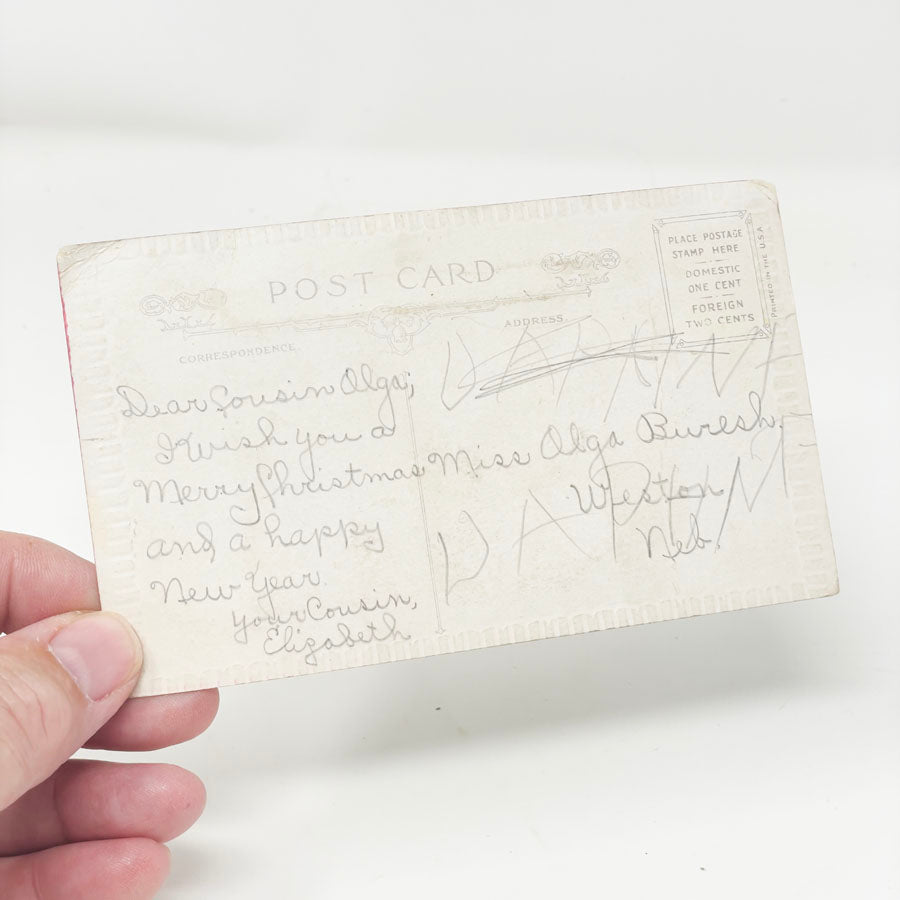 POST CARD
PLACE POSTAGE
STAMP HERE
DOMESTIC
ONE CENT
FOREIGN
TWO CENTS
PRINTED IN THE U.S.A
CORRESPONDENCE
ADDRESS
Dear Cousin Olga;
I wish you a
Merry Christmas
and a happy
New Year.
your Cousin,
Elizabeth
Miss Olga Buresh,
Weston
Neb.